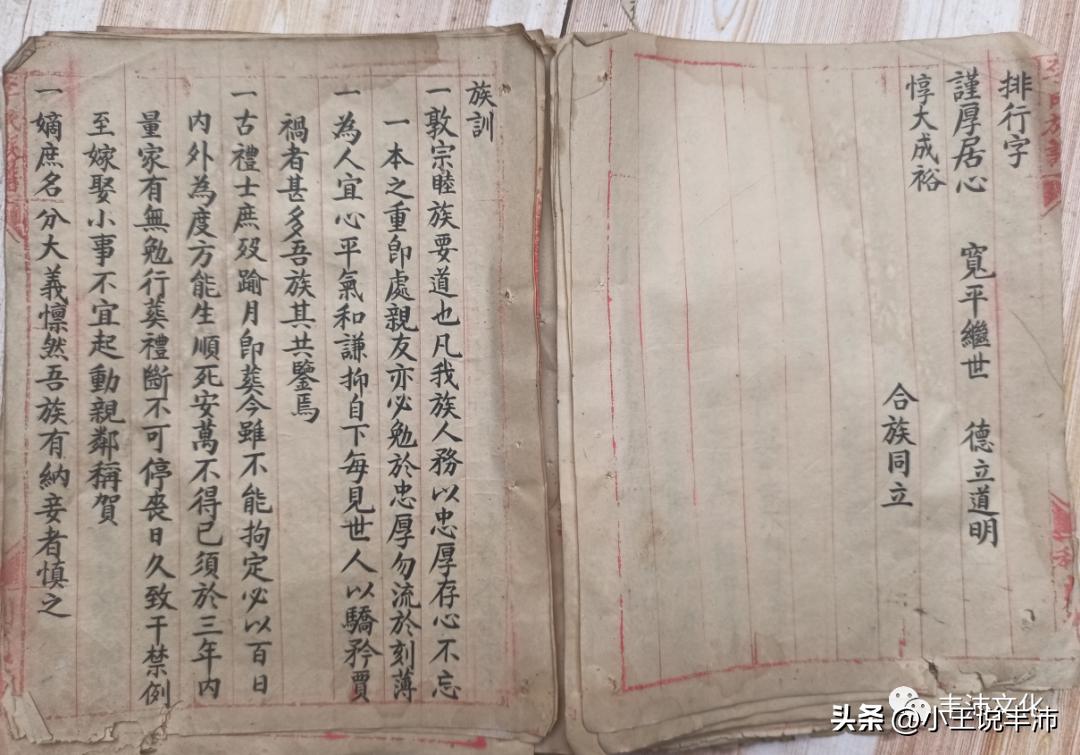 排行字
謹厚居心 寬平繼世 德立道明
惇大成裕
合族同立
族訓
一敦宗睦族要道也凡我族人務以忠厚存心不忘
一本之重卽處親友亦必勉於忠厚勿流於刻薄
一為人宜心平氣和謙抑自下每見世人以驕矜賈
禍者甚多吾族其共鑒焉
一古禮士庶歿踰月卽葬今雖不能拘定必以百日
內外為度方能生順死安萬不得已須於三年內
量家有無勉行葬禮斷不可停喪日久致干禁例
至嫁娶小事不宜起動親鄰稱賀
一嫡庶名分大義懍然吾族有納妾者慎之
丰沛文化
头条 @小王说丰沛